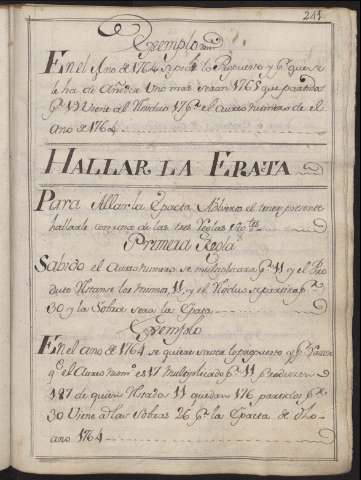 241
Exemplo
En el Año de 1764 se pide lo Propuesto y pr. que se
le ha de Añadir Uno mas seran 1765 que partidos
pr. 19 Viene al Residuo 17 pr. el Aureo numero de el
Año de 1764
HALLAR LA EPATA
Para Allar la Epacta Advierto el tener presente
hallarle con una de las tres Reglas
Primera Regla
Sabido el Aureo numero se multiplicara pr. 11 y el Pro
ducto Restarse los mismos 11 y el Residuo se partira pr.
30 y la Sobra sera la Epata
Exemplo
En el ano de 1764 se quiere sacar lo propuesto y pr.
qe. el Aureo numo. es 17 Multiplicado pr. 11 producen
187 de quien Restados 11 quedan 176 partidos pr.
30 Viene a las Sobras 26 pr. la Epacta de dho
ano 1764